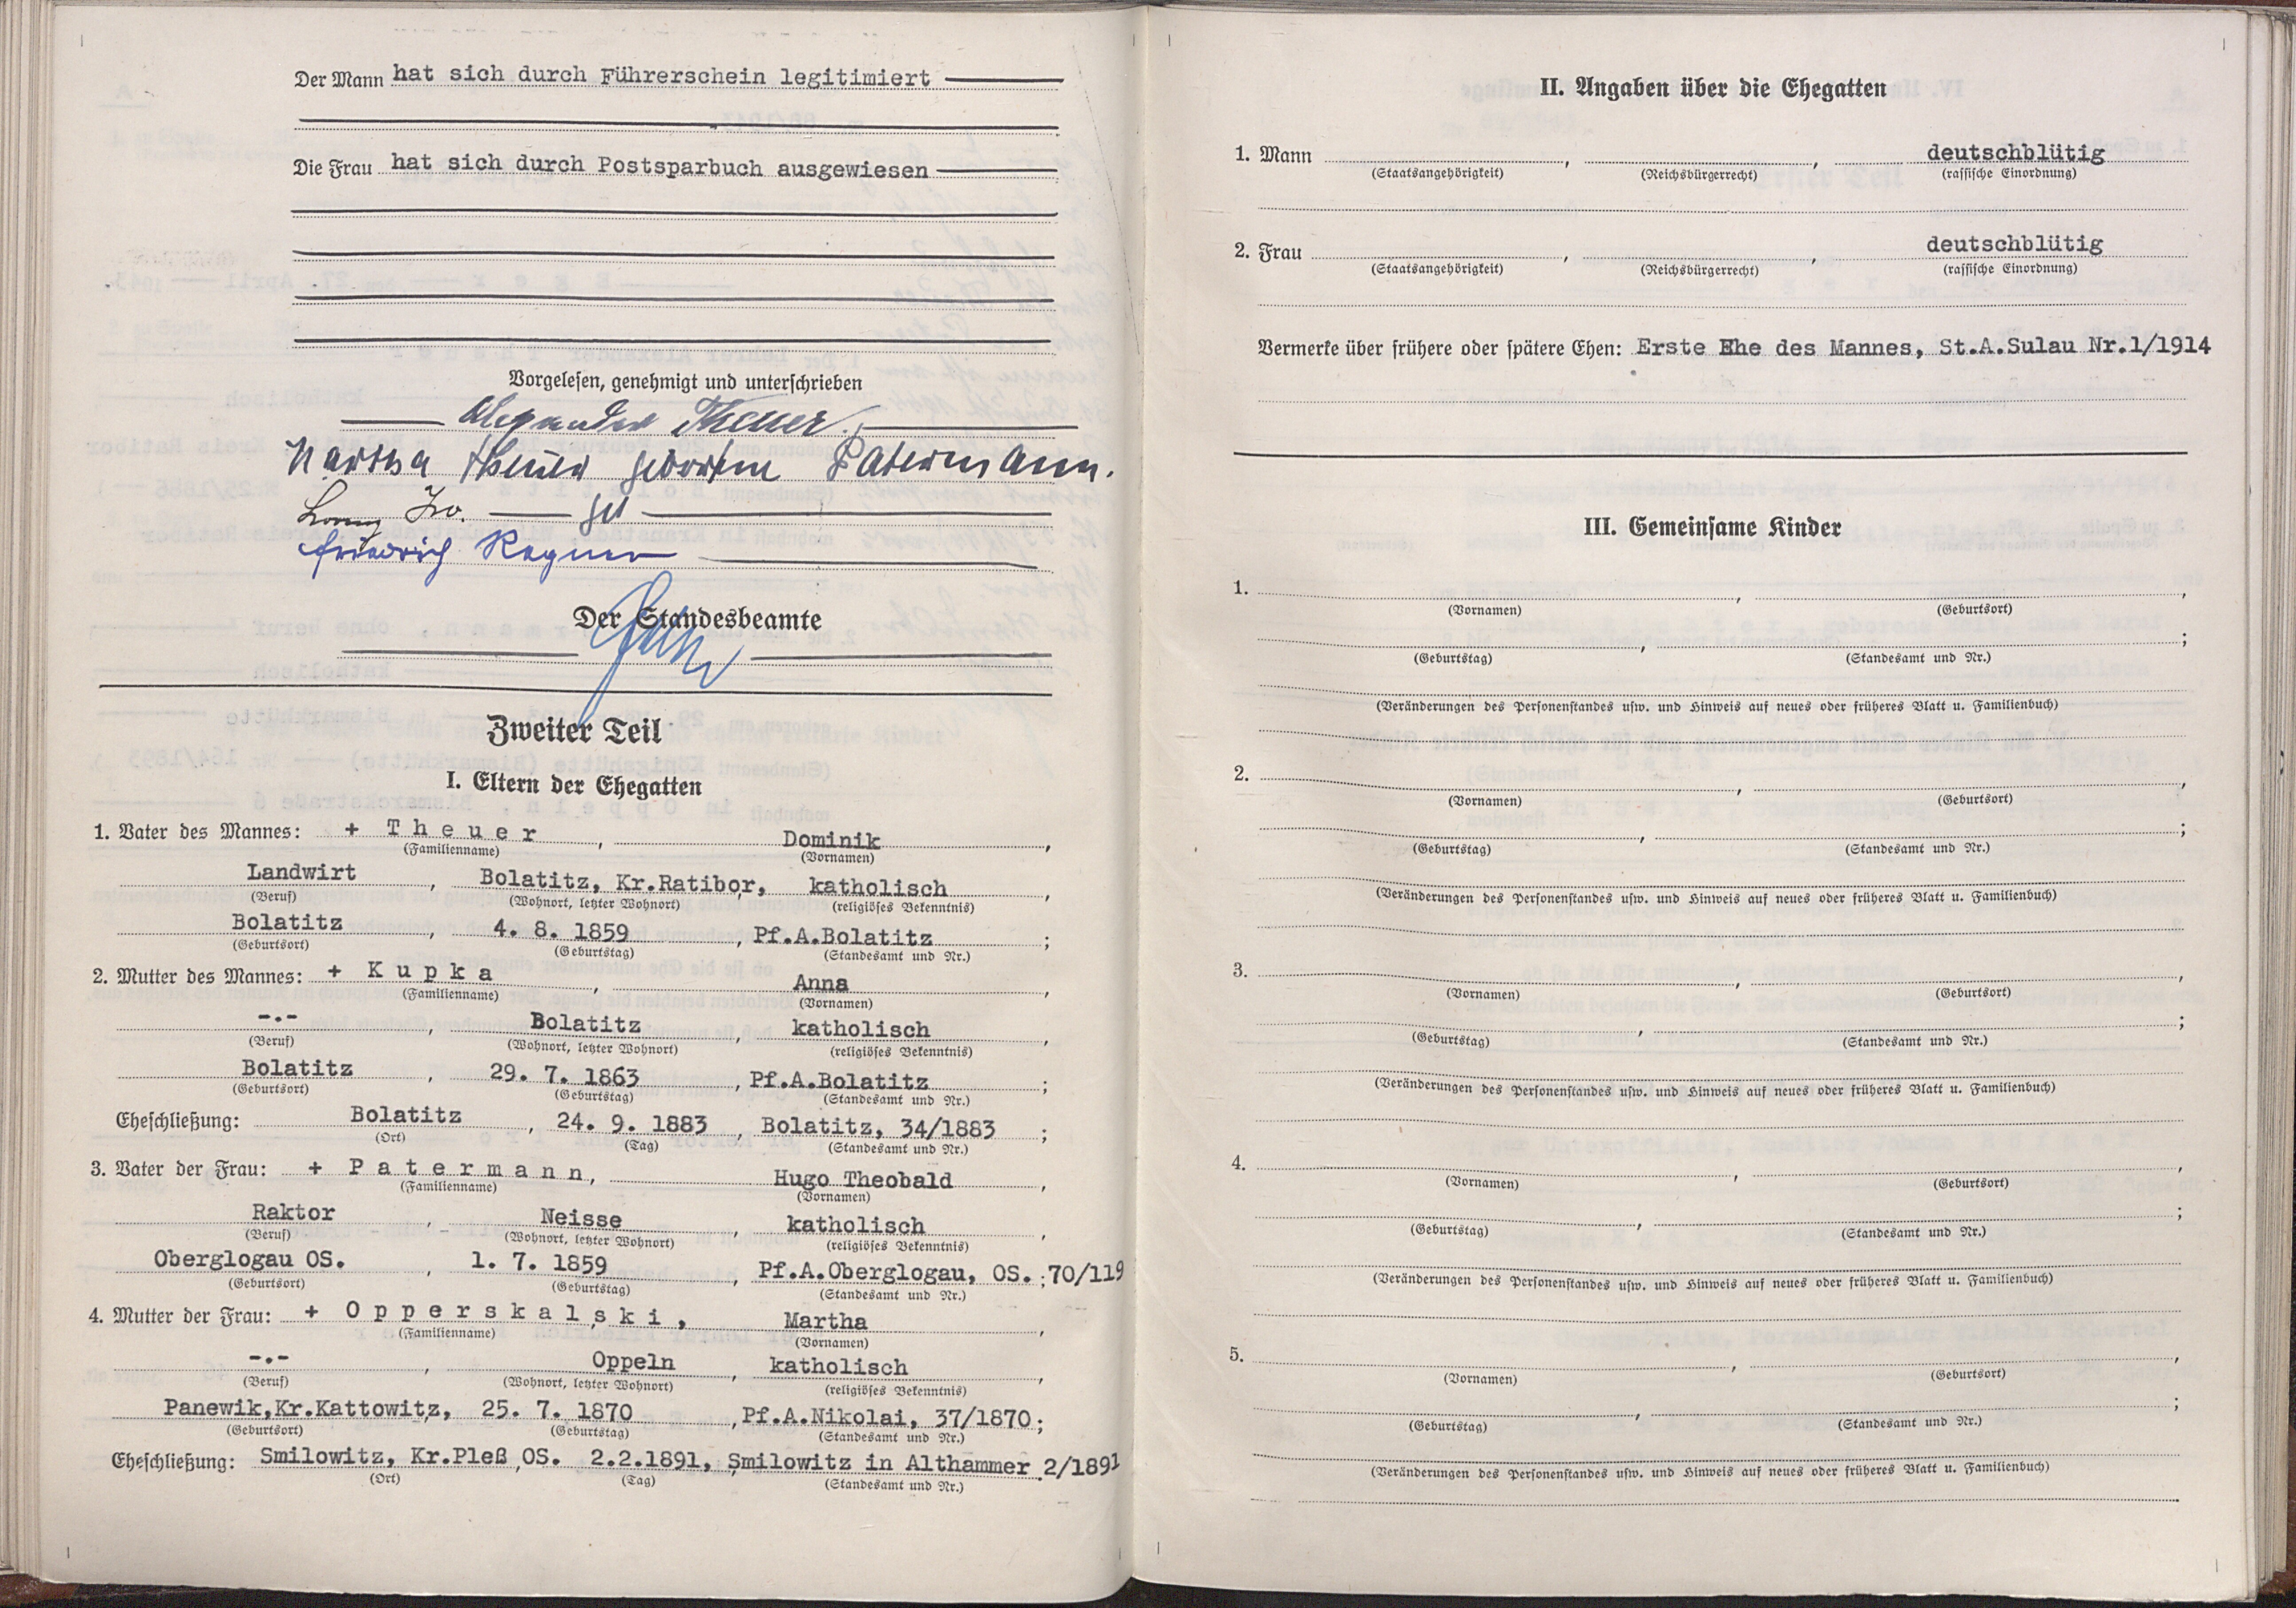 Der Mann hat sich durch Führerschein legitimiert
Die Frau hat sich durch Postsparbuch ausgewiesen
Vorgelesen, genehmigt und unterschrieben
Alexander Theuer.
Martha Theuer geborene Patermann.
Friedrich Wagner
Der Standesbeamte
Zweiter Teil
I. Eltern der Ehegatten
1. Vater des Mannes: + Theuer, Dominik,
(Familienname) (Vornamen)
Landwirt, Bolatitz, Kr.Ratibor, katholisch,
(Beruf) (Wohnort, letzter Wohnort) (religiöses Bekenntnis)
Bolatitz, 4. 8. 1859, Pf.A.Bolatitz;
(Geburtsort) (Geburtstag) (Standesamt und Nr.)
2. Mutter des Mannes: + Kupka, Anna,
(Familienname) (Vornamen)
-.-, Bolatitz, katholisch,
(Beruf) (Wohnort, letzter Wohnort) (religiöses Bekenntnis)
Bolatitz, 29. 7. 1863, Pf.A.Bolatitz;
(Geburtsort) (Geburtstag) (Standesamt und Nr.)
Eheschließung: Bolatitz, 24. 9. 1883, Bolatitz, 34/1883;
(Ort) (Tag) (Standesamt und Nr.)
3. Vater der Frau: + Patermann, Hugo Theobald,
(Familienname) (Vornamen)
Raktor, Neisse, katholisch,
(Beruf) (Wohnort, letzter Wohnort) (religiöses Bekenntnis)
Oberglogau OS., 1. 7. 1859, Pf.A.Oberglogau, OS.;70/119
(Geburtsort) (Geburtstag) (Standesamt und Nr.)
4. Mutter der Frau: + Opperskalski, Martha,
(Familienname) (Vornamen)
-.-, Oppeln, katholisch,
(Beruf) (Wohnort, letzter Wohnort) (religiöses Bekenntnis)
Panewik,Kr.Kattowitz, 25. 7. 1870, Pf.A.Nikolai, 37/1870;
(Geburtsort) (Geburtstag) (Standesamt und Nr.)
Eheschließung: Smilowitz, Kr.Pleß,OS. 2.2.1891, Smilowitz in Althammer 2/1891
(Ort) (Tag) (Standesamt und Nr.)
II. Angaben über die Ehegatten
1. Mann , , deutschblütig
(Staatsangehörigkeit) (Reichsbürgerrecht) (rassische Einordnung)
2. Frau , , deutschblütig
(Staatsangehörigkeit) (Reichsbürgerrecht) (rassische Einordnung)
Vermerke über frühere oder spätere Ehen: Erste Ehe des Mannes, St.A.Sulau Nr.1/1914
III. Gemeinsame Kinder
1. , ,
(Vornamen) (Geburtsort)
, ;
(Geburtstag) (Standesamt und Nr.)
(Veränderungen des Personenstandes usw. und Hinweis auf neues oder früheres Blatt u. Familienbuch)
2. , ,
(Vornamen) (Geburtsort)
, ;
(Geburtstag) (Standesamt und Nr.)
(Veränderungen des Personenstandes usw. und Hinweis auf neues oder früheres Blatt u. Familienbuch)
3. , ,
(Vornamen) (Geburtsort)
, ;
(Geburtstag) (Standesamt und Nr.)
(Veränderungen des Personenstandes usw. und Hinweis auf neues oder früheres Blatt u. Familienbuch)
4. , ,
(Vornamen) (Geburtsort)
, ;
(Geburtstag) (Standesamt und Nr.)
(Veränderungen des Personenstandes usw. und Hinweis auf neues oder früheres Blatt u. Familienbuch)
5. , ,
(Vornamen) (Geburtsort)
, ;
(Geburtstag) (Standesamt und Nr.)
(Veränderungen des Personenstandes usw. und Hinweis auf neues oder früheres Blatt u. Familienbuch)